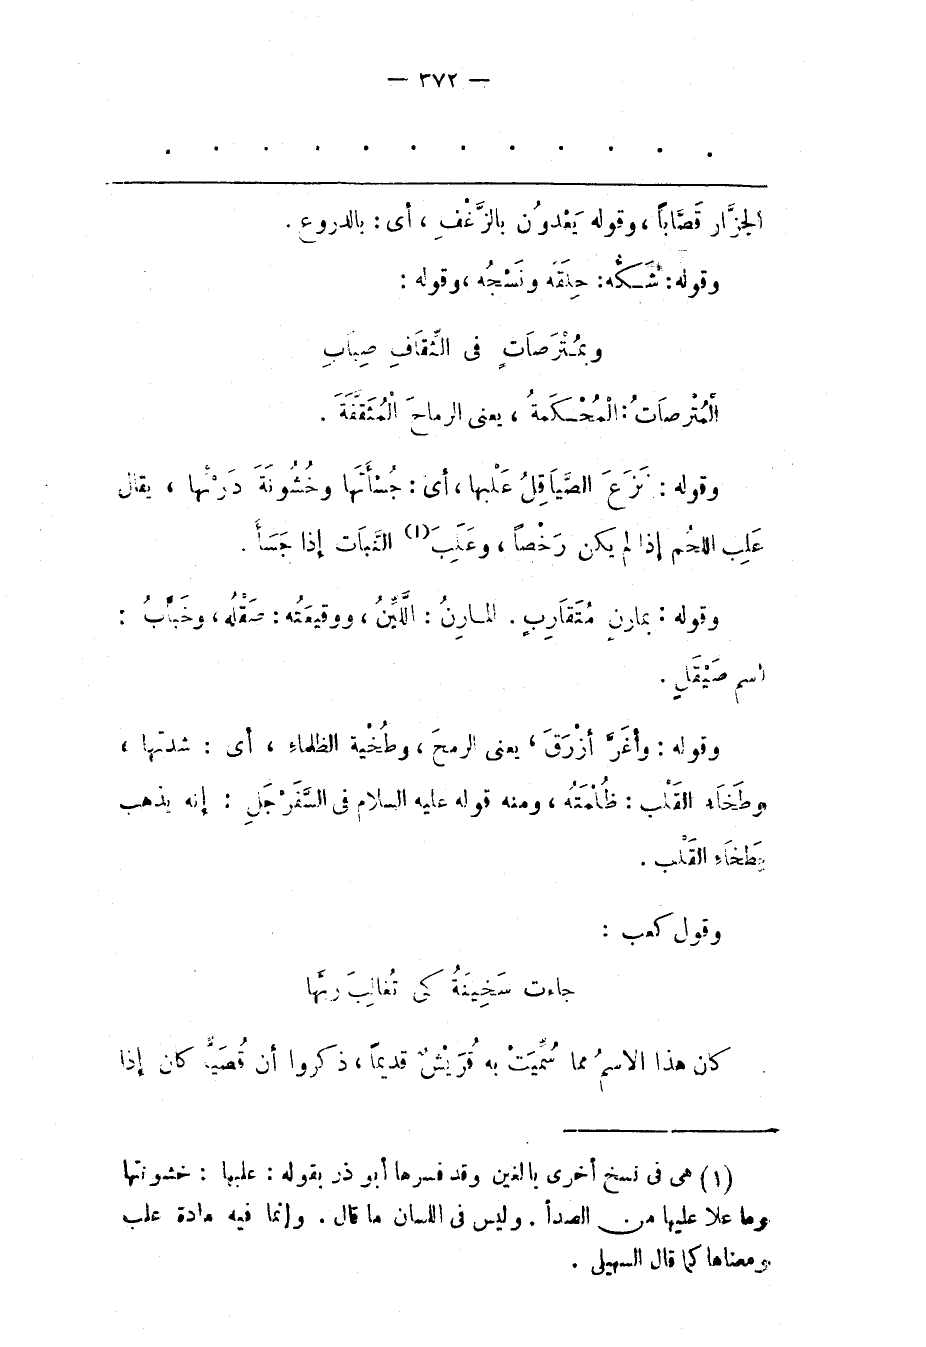 — ٣٧٢ —
. . . . . . . . . . . .
الجزَّار قَصَّاباً ، وقوله يَعْدوُن بالزَّغْفِ ، أى : بالدروع .
وقوله : شَكَّه : حِلَقَه ونَسْجُه ، وقوله :
وبمُتْرَصاَتٍ فى الثِّقاَفِ صِيابِ
الْمُتْرصاَتُ : الْمُحْكَمةُ ، يعنى الرماحَ الْمُثَقَّفَةَ .
وقوله : نَزَعَ الصَّيَاقِلُ عَلْبها ، أى : جُسْأَتَها وخُشُونَةَ دَرْئها ، يقال
عَلِب اللحُم إذا لم يكن رَخْصاً ، وعَلَبَ (١) النَّبَات إذا جَسَأَ .
وقوله : بمارنٍ مُتَقَارِبٍ . المارِنُ : اللَّيِّنُ ، ووقيعَتُه : صَقْلُه ، وخَبَّابُ :
اسم صَيْقَلٍ .
وقوله : وأغَرَّ أزْرَقَ ، يعنى الرمحَ ، وطُخْية الظلماءِ ، أى : شدتها ،
وطَخاَء القَلْب : ظُلْمَتُه ، ومنه قوله عليه السلام فى السَّفَرْجَلِ : إنه يذهب
بِطَخاَءِ القَلْب .
وقول كعب :
جاءت سَخِينَةُ كى تُغالِبَ ربَّها
كان هذا الاسمُ مما سُمِّيَتْ به قُرَيْشٌ قديماً ، ذكروا أن قُصَيًّا كان إذا
(١) هى فى نسخ أخرى بالغين وقد فسرها أبو ذر بقوله : علبها : خشونتها
وما علا عليها من الصدأ . وليس فى اللسان ما قال . وإنما فيه مادة علب
ومعناها كما قال السهيلى .